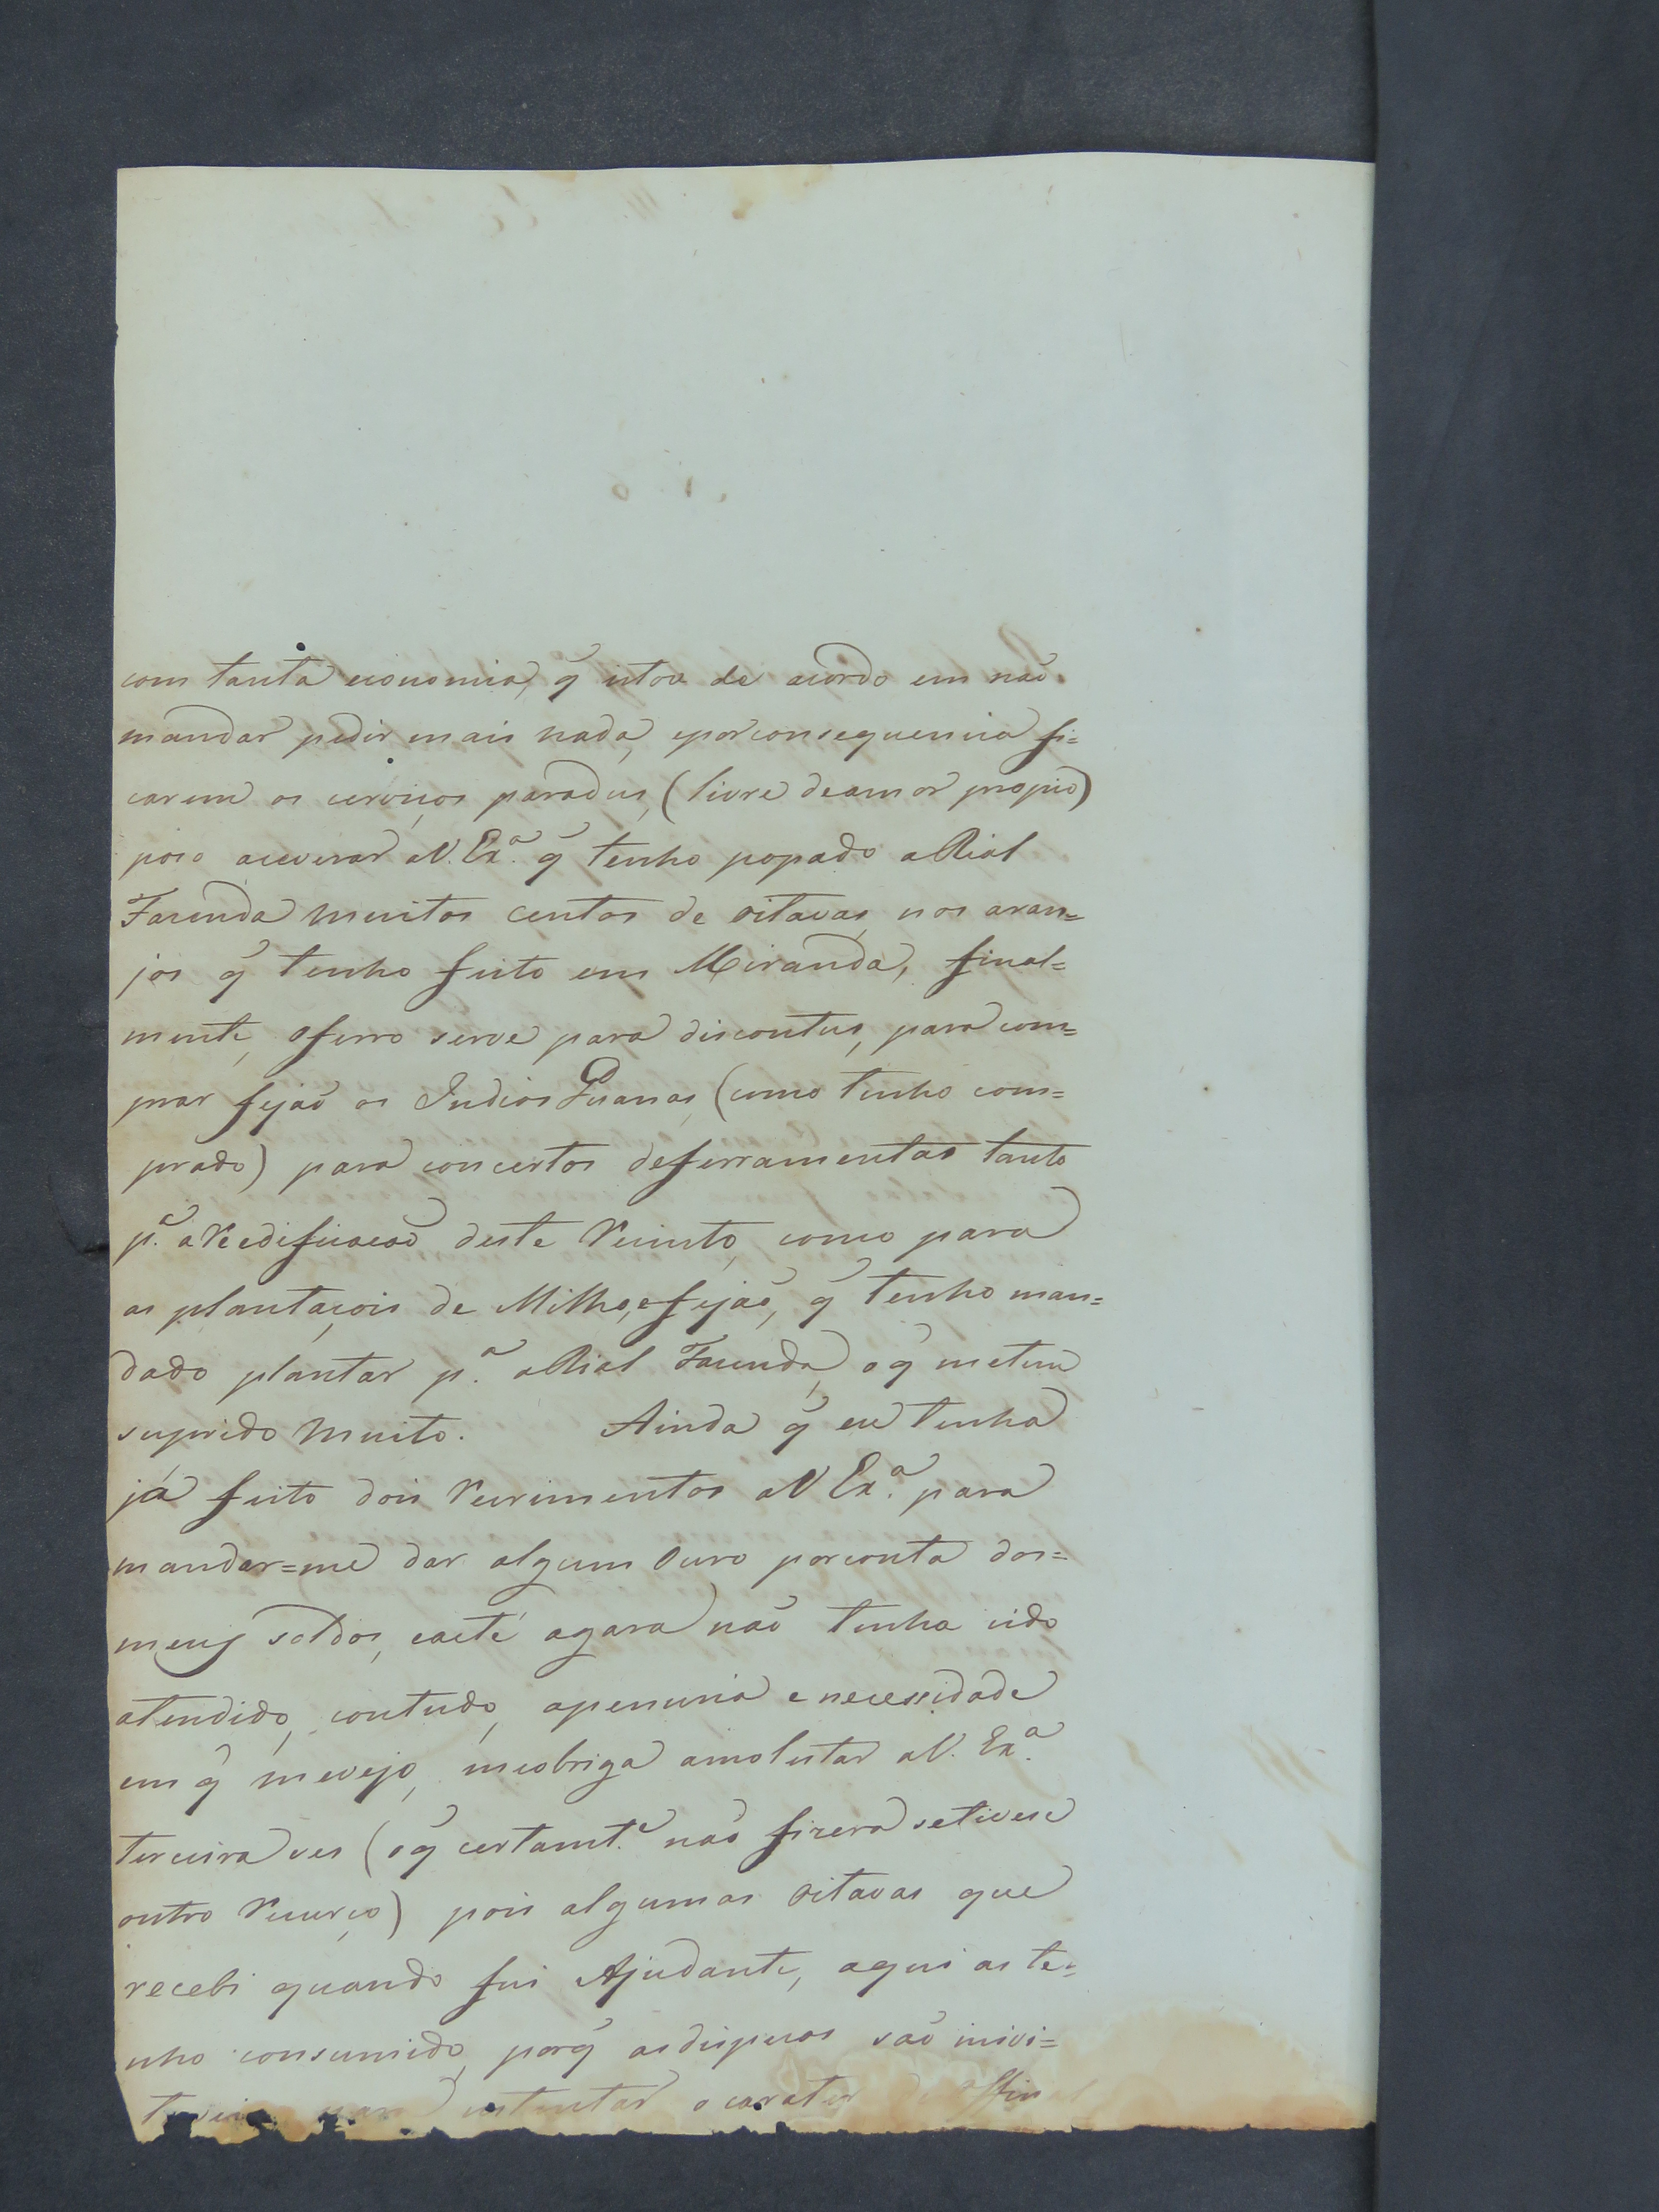 com tanta economia, q̃ istou de acordo em naõ
mandar pedir mais nada, eporconsequencia fi=
carem os cerviços parados, (livre deamor propio)
poso aceverar aV. Exª. q̃ tenho popado aRial
Fazenda muitos centos de oitavas, nos aran=
jos q̃ tenho feito em Miranda, final=
mente, oferro serve para discontos, para com=
prar fejaõ os Indios Guanas, (como tenho com=
prado) para concertos deferramentas tanto
pª. aReedificacaõ deste Recinto, como para
as plantaçois de Milho, efejaõ, q̃ tenho man=
dado plantar pª. aRial Fazenda, oq̃ metem
suprido muito. Ainda q̃ eu tenha
já feito dois Recrimentos aV Exª. para
mandar=me dar algum Ouro porconta dos=
meus soldos, eaeté agara naõ tenha sido
atendido, contudo, apenuria enecessidade
em q̃ mevejo, meobriga amolestar aV. Exª.
terceira ves (oq̃ certamtᵉ. naõ fizera setivese
outro Recurço) pois algumas Oitavas que
recebi quando fui Ajudante, aqui as te=
nho consumido, porq̃ asdispezas saõ inivi=
taveis para ustentar ocarater de Offi